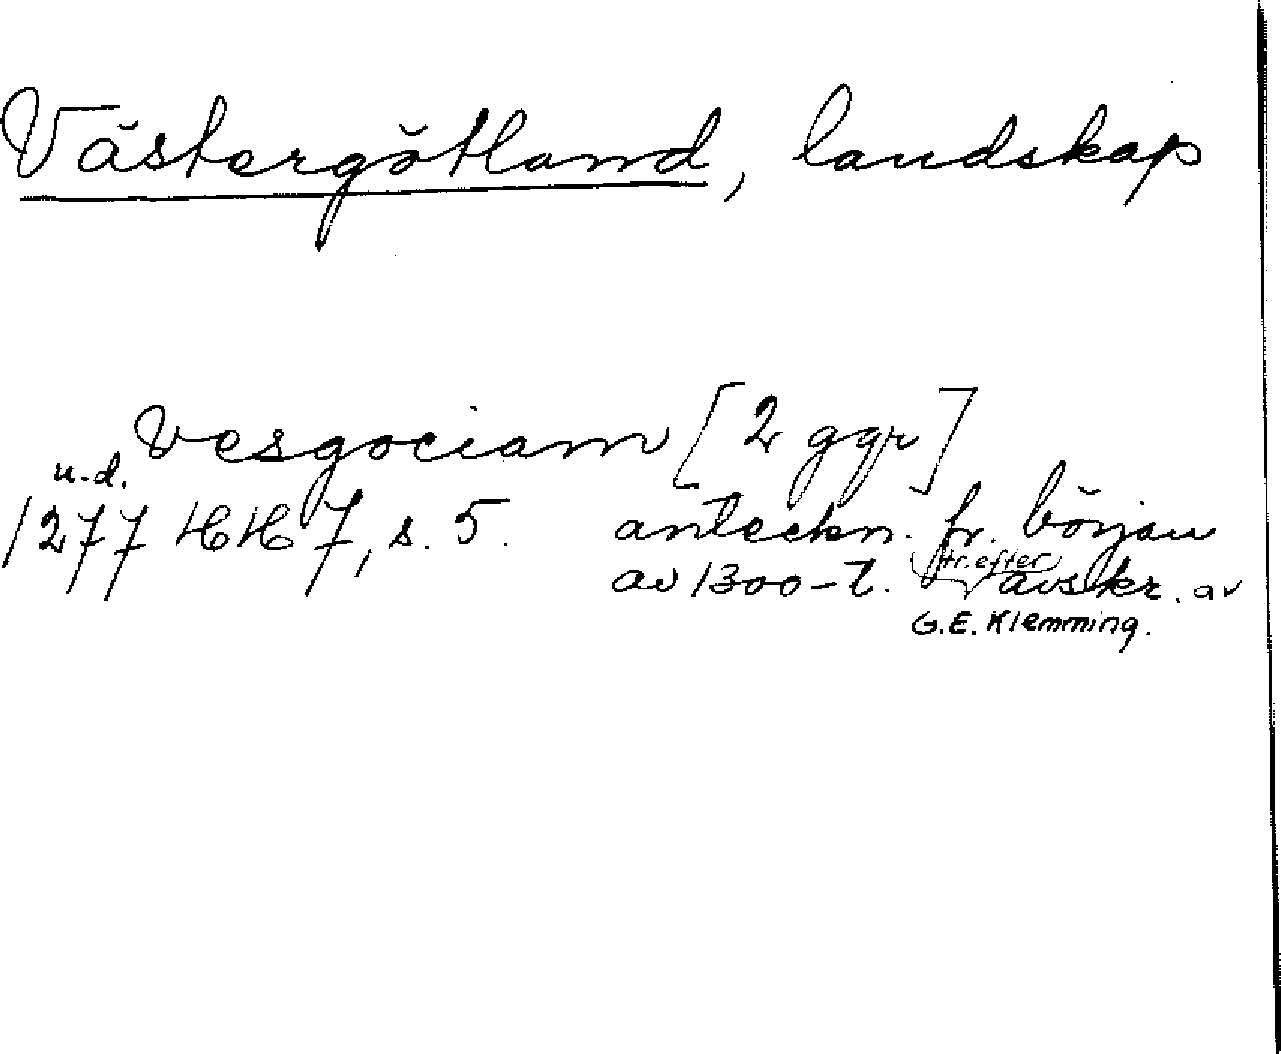 Västergötland, landskap
Vesgociam [2 ggr]
u.d.
1277 HH 7, s. 5. anteckn. fr. början
av 1300-t. tr. efter avskr. av
G.E. Klemming.